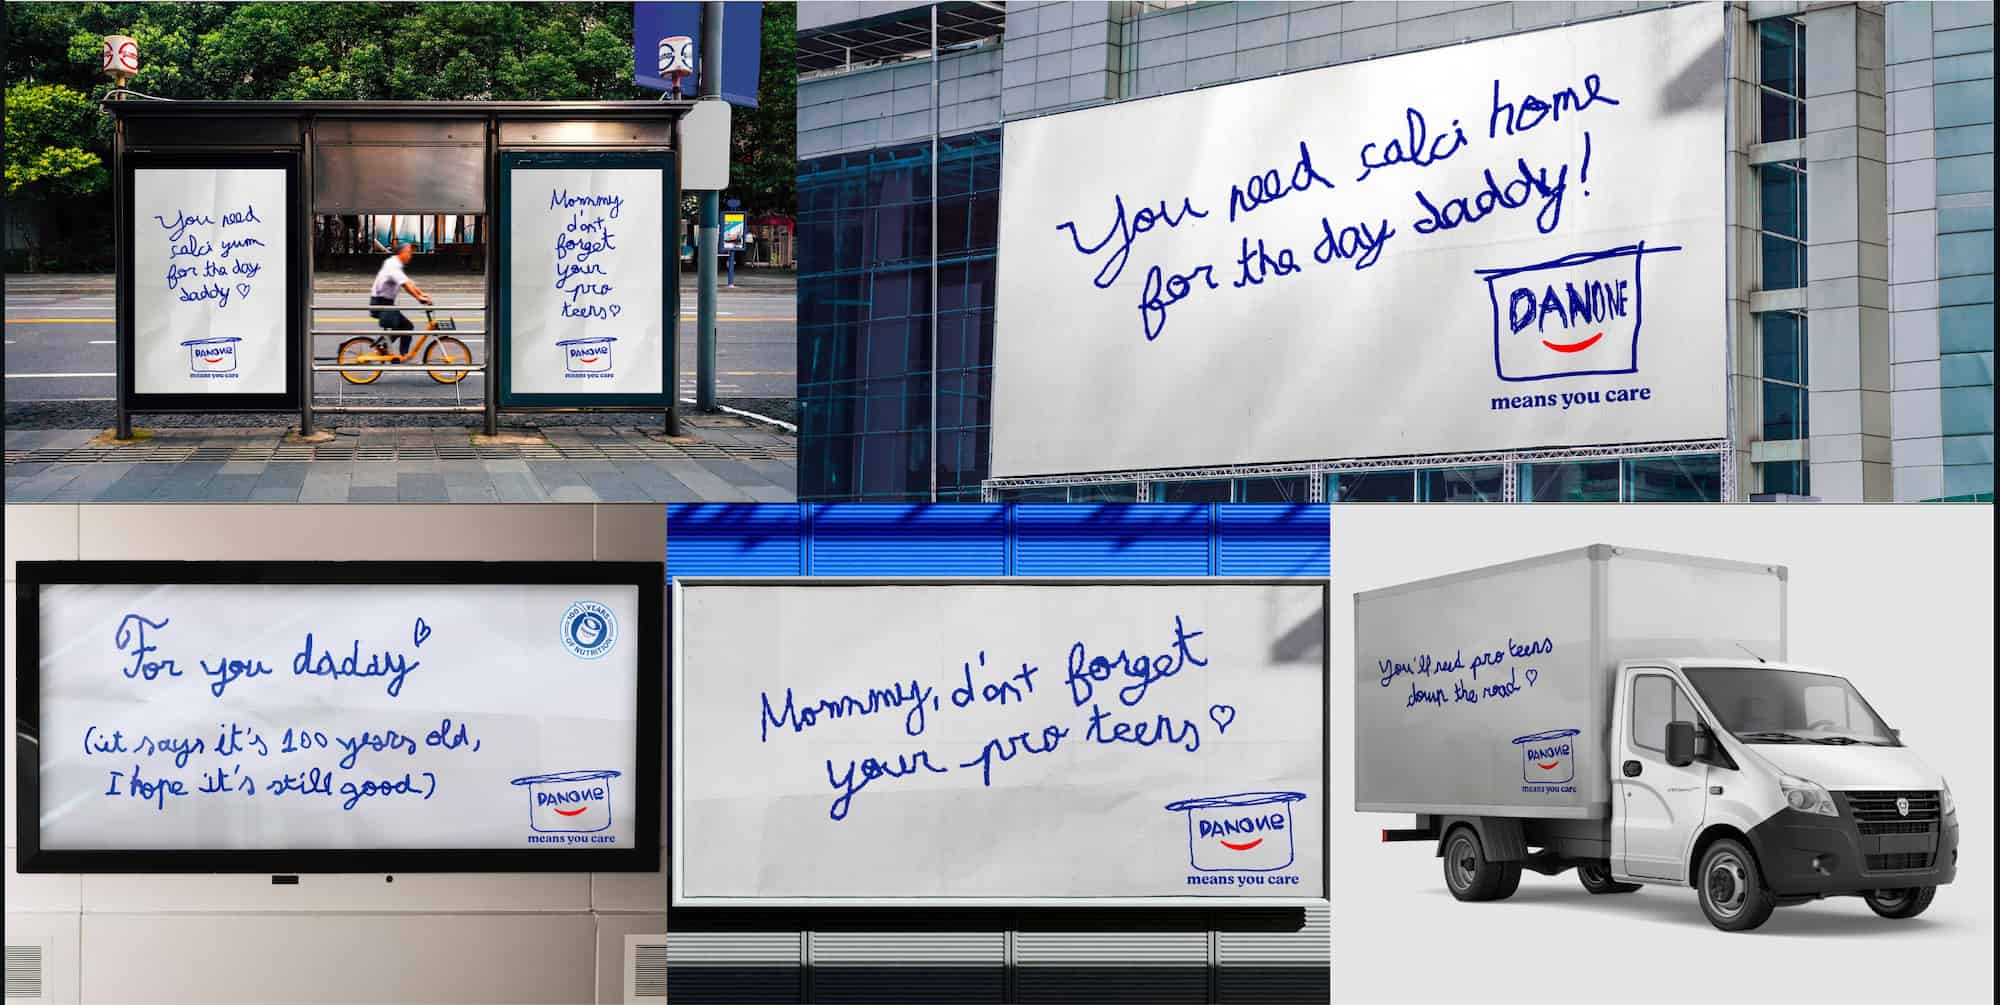 You need
calci yum
for the day
daddy ♡
DANONE
means you care
Mommy
d'ont
forget
your
pro
teens ♡
DANONE
means you care
You need calci home
for the day daddy!
DANONE
means you care
For you daday ♡
(it says it's 100 years old,
I hope it's still good)
100 YEARS
OF NUTRITION
DANONE
means you care
Mommmy, d'ont forget
your pro teens ♡
DANONE
means you care
You'll need pro teens
down the road ♡
DANONE
means you care